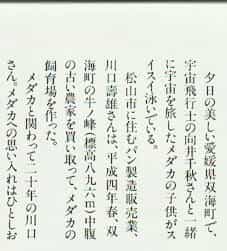 夕日の美しい愛媛県双海町で、
宇宙飛行士の向井千秋さんと一緒
に宇宙を旅したメダカの子供がス
イスイ泳いでいる。
松山市に住むパン製造販売業、
川口壽雄さんは、平成四年春、双
海町の牛ノ峰(標高八九六㍍)中腹
の古い農家を買い取って、メダカの
飼育場を作った。
メダカと関わって二十年の川口
さん。メダカへの思い入れはひとしお